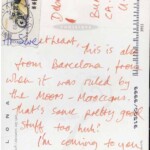 Sweetheart, this is also
from Barcelona, from
when it was ruled by
the Moors - Moroccans,
that's some pretty good
stuff too, huh?
I'm coming to you
Da
Bu
CA
U
LONA